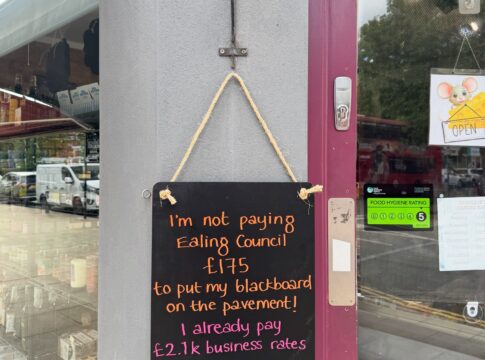 I'm not paying
Ealing Council
£175
to put my blackboard
on the pavement!
I already pay
£2.1k business rates
OPEN
FOOD HYGIENE RATING
0 1 2 3 4 5